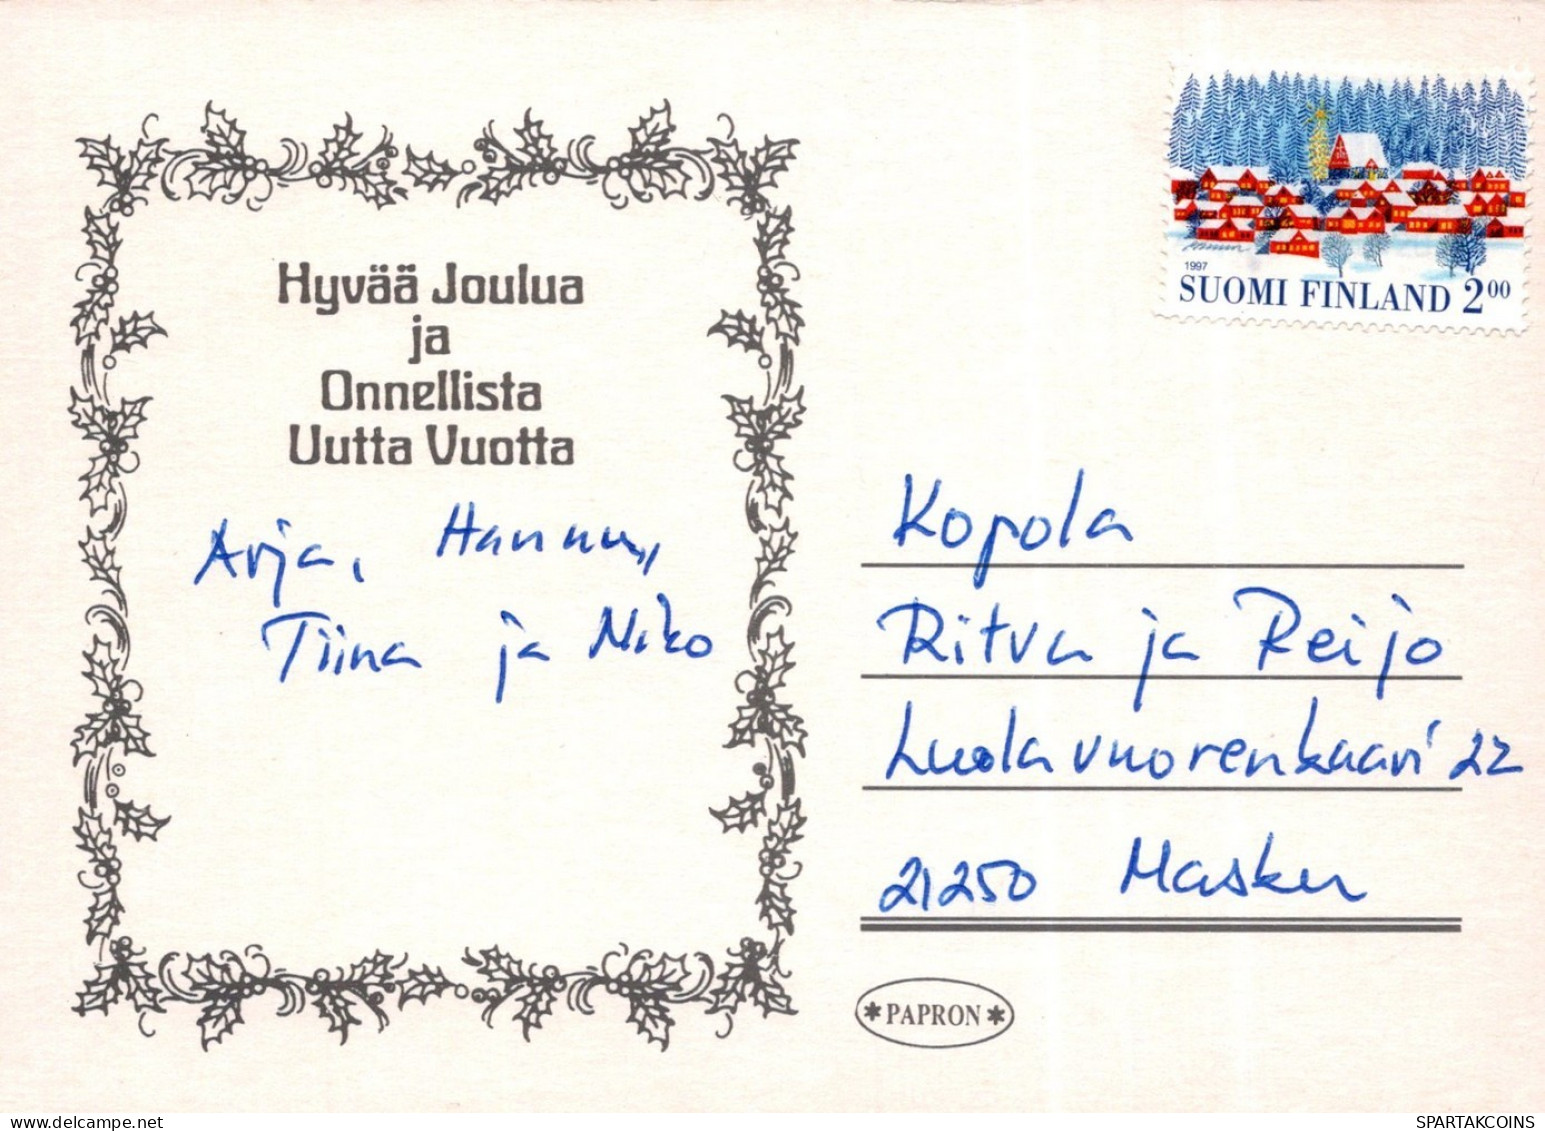 Hyvää Joulua
ja
Onnellista
Uutta Vuotta
Arja, Hannu,
Tiina ja Niko
1997
SUOMI FINLAND 2.00
Kopola
Ritva ja Reijo
Luolavuorenkaari 22
21250 Masku
*PAPRON*
SPARTAKCOINS.COM